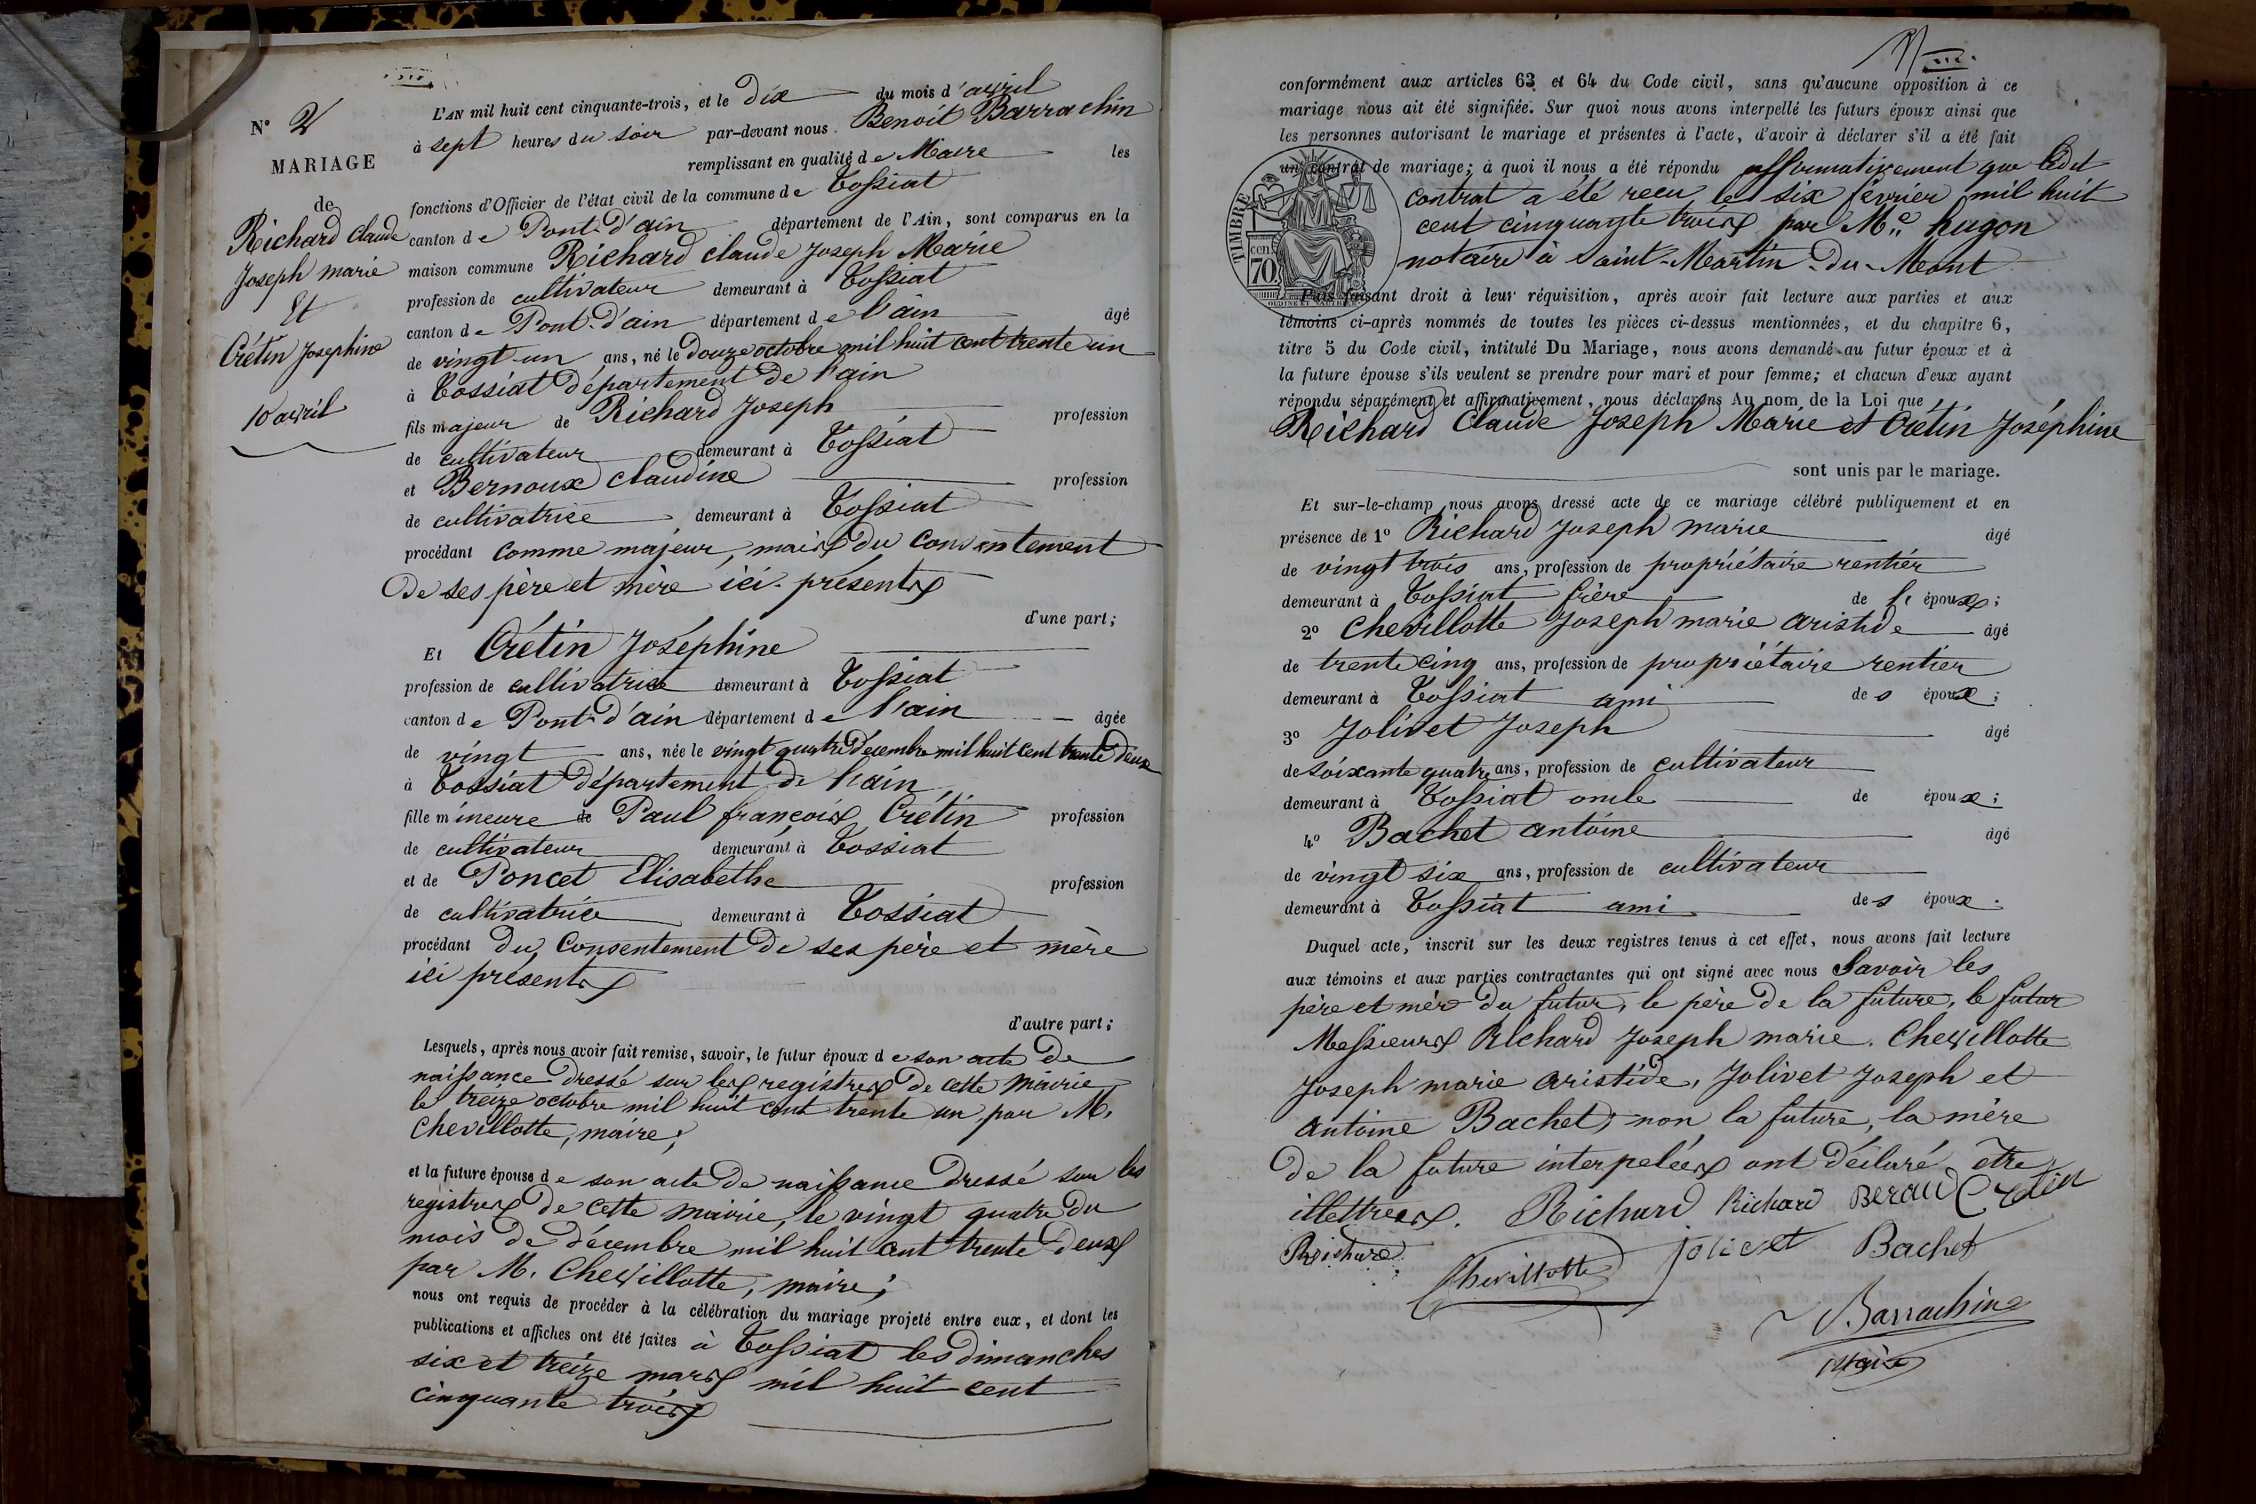 N° 2
MARIAGE
de
Richard Claude
Joseph marie
Et
Crétin Josephine
10 avril
L'AN mil huit cent cinquante-trois, et le Dix du mois d'avril
à sept heures du soir par-devant nous Benoit Barrachin
remplissant en qualité de Maire les
fonctions d'Officier de l'état civil de la commune de Tossiat
canton de Pont-d'ain département de l'Ain, sont comparus en la
maison commune Richard claude Joseph Marie
profession de cultivateur demeurant à Tossiat
canton de Pont-d'ain département de l'ain âgé
de vingt-un ans, né le Douze octobre mil huit cent trente un
à Tossiat département de l'ain
fils majeur de Richard Joseph profession
de cultivateur demeurant à Tossiat
et Bernoux Claudine profession
de cultivatrice demeurant à Tossiat
procédant comme majeur, mais du consentement
De ses père et mère ici présents
d'une part;
Et Crétin Joséphine
profession de cultivatrice demeurant à Tossiat
canton de Pont-d'ain département de l'ain âgée
de vingt ans, née le vingt quatre Décembre mil huit cent trente deux
à Tossiat département de l'ain,
fille mineure de Paul françois Crétin profession
de cultivateur demeurant à Tossiat
et de Poncet Elisabethe profession
de cultivatrice demeurant à Tossiat
procédant du Consentement De ses père et mère
ici présents
d'autre part;
Lesquels, après nous avoir fait remise, savoir, le futur époux de son acte De
naissance Dressé sur les registres De cette Mairie
le treize octobre mil huit cent trente un par M.
Chevillotte, maire;
et la future épouse de son acte De naissance Dressé sur les
registres De Cette Mairie, le vingt quatre Du
mois De décembre mil huit cent trente Deux
par M. Chevillotte, maire;
nous ont requis de procéder à la célébration du mariage projeté entre eux, et dont les
publications et affiches ont été faites à Tossiat les Dimanches
six et treize mars mil huit cent
cinquante trois
conformément aux articles 63 et 64 du Code civil, sans qu'aucune opposition à ce
mariage nous ait été signifiée. Sur quoi nous avons interpellé les futurs époux ainsi que
les personnes autorisant le mariage et présentes à l'acte, d'avoir à déclarer s'il a été fait
un contrat de mariage; à quoi il nous a été répondu affirmativement que ledit
contrat a été reçu le six février mil huit
cent cinquante trois par Me hugon
notaire à Saint-Martin-Du-Mont
TIMBRE
cent
70
Puis faisant droit à leur réquisition, après avoir fait lecture aux parties et aux
témoins ci-après nommés de toutes les pièces ci-dessus mentionnées, et du chapitre 6,
titre 5 du Code civil, intitulé Du Mariage, nous avons demandé au futur époux et à
la future épouse s'ils veulent se prendre pour mari et pour femme; et chacun d'eux ayant
répondu séparément et affirmativement, nous déclarons Au nom de la Loi que
Richard Claude Joseph Marie et Crétin Joséphine
sont unis par le mariage.
Et sur-le-champ nous avons dressé acte de ce mariage célébré publiquement et en
présence de 1° Richard Joseph marie âgé
de vingt trois ans, profession de propriétaire rentier
demeurant à Tossiat frère de l' époux;
2° Chevillotte Joseph marie aristide âgé
de trente cinq ans, profession de propriétaire rentier
demeurant à Tossiat ami des époux;
3° Jolivet Joseph âgé
de soixante quatre ans, profession de cultivateur
demeurant à Tossiat oncle de époux;
4° Bachet antoine âgé
de vingt six ans, profession de cultivateur
demeurant à Tossiat ami des époux.
Duquel acte, inscrit sur les deux registres tenus à cet effet, nous avons fait lecture
aux témoins et aux parties contractantes qui ont signé avec nous Savoir les
père et mère du futur, le père De la future, le futur
Messieurs Richard Joseph marie. Chevillotte
Joseph marie aristide, Jolivet Joseph et
antoine Bachet; non la future, la mère
De la future interpelées ont déclaré être
illettrées. Richard Richard Crétin
Richard
Chevillotte Jolivet Bachet
Barrachin
Maire